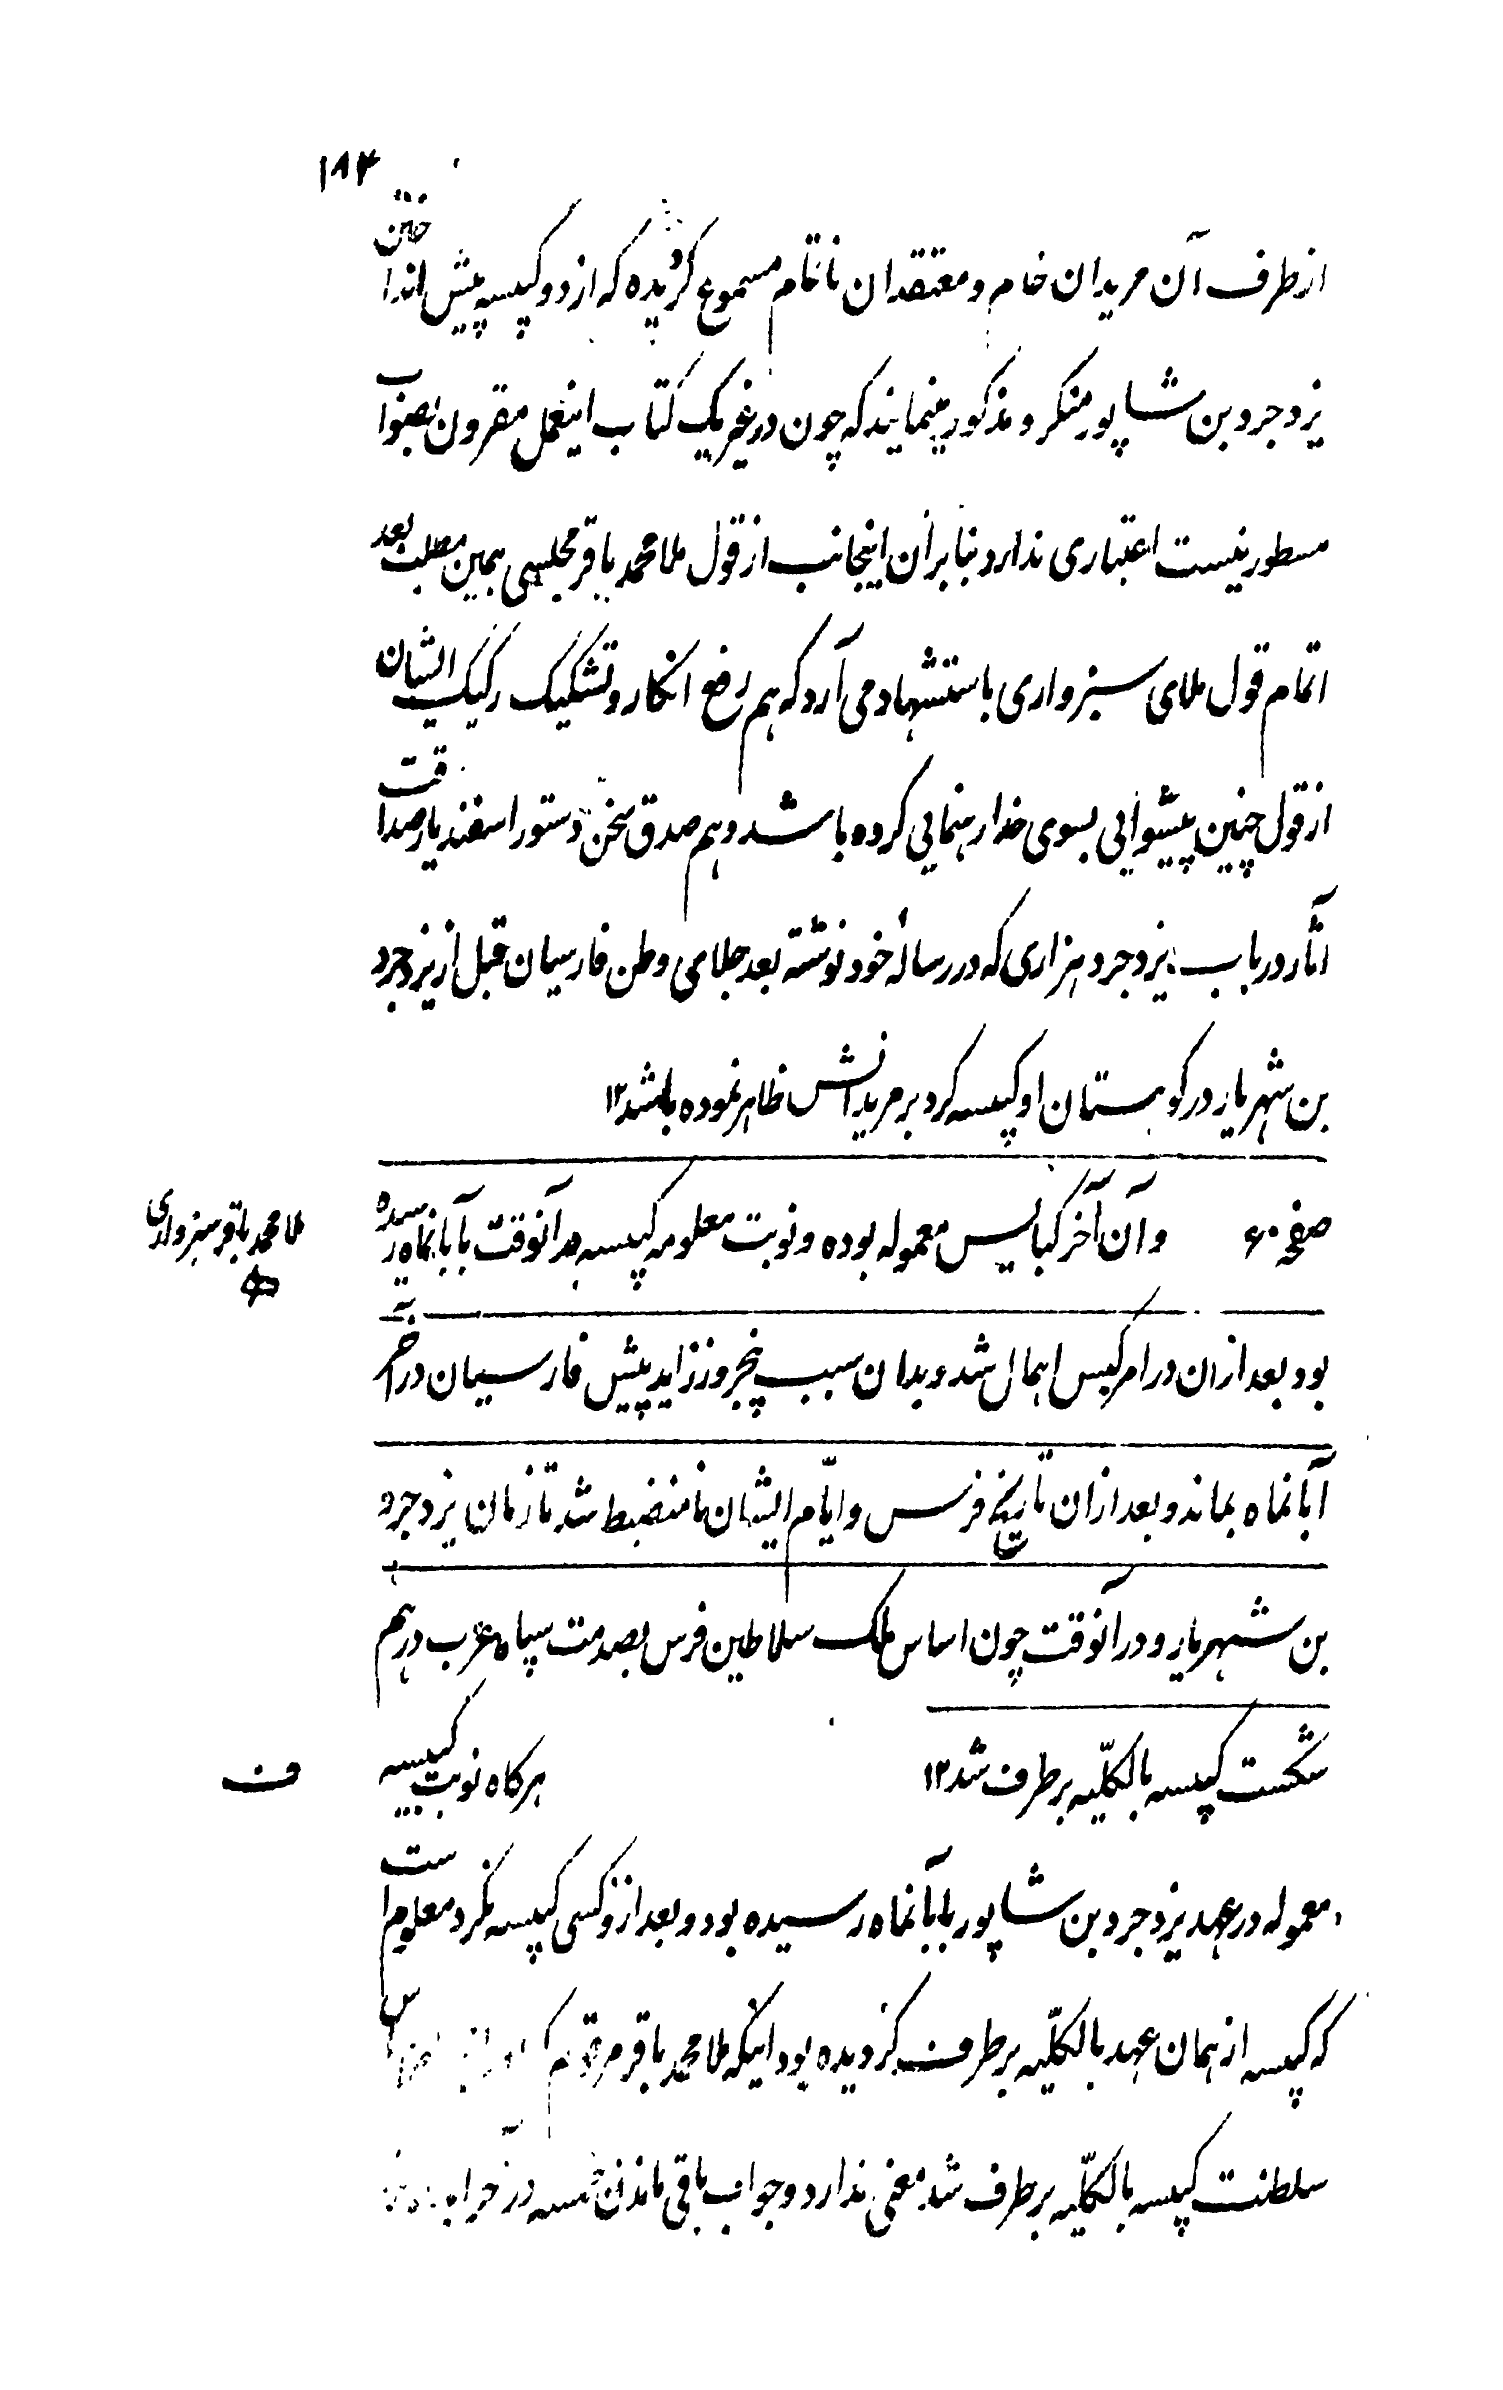 ۱۸۴
از طرف آن مریدان خام و معتقدان ناتمام مسموع گردیده که از دو کبیسه پیش انداختن
یزدجرد بن شاپور منکر و مذکور مینمایند که چون در غیر یک کتاب اینعمل مقرون بصواب
مسطور نیست اعتباری ندارد بنابرآن اینجانب از قول ملا محمد باقر مجلسی بهمین مطلب بعد
اتمام قول ملای سبزواری باستشهاد می آرد که هم رفع انکار و تشکیک رکیک ایشان
از قول چنین پیشوایی بسوی خدا رهنمایی کرده باشد و هم صدق سخن دستور اسفندیار صداقت
آثار در باب یزدجرد هزاری که در رسالهٔ خود نوشته بعد جلای وطن فارسیان قبل از یزدجرد
بن شهریار در کوهستان او کبیسه کرد بر مریدانش ظاهر نموده باشد ۱۲
صفحه ۶۰ و آن آخر کبائس معموله بوده و نوبت معلومه کبیسه درآنوقت بآبانماه رسیده
ملا محمد باقر سبزواری
بود بعد ازان در امر کبس اهمال شد و بدان سبب پنجروز زاید پیش فارسیان در آخر
آبانماه بماند و بعد ازان تاریخ فرس و ایّام ایشان نامنضبط شد تا زمان یزدجرد
بن شهریار و درآنوقت چون اساس ملک سلاطین فرس بصدمت سپاه عرب درهم
شکست کبیسه بالکلّیه برطرف شد ۱۲ هرکاه نوبت کبیسه
ف
معموله در عهد یزدجرد بن شاپور بآبانماه رسیده بود و بعد ازو کسی کبیسه نکرد معلوم است
که کبیسه از همان عهد بالکلّیه برطرف گردیده بود اینکه ملا محمد باقر مرقوم
سلطنت کبیسه بالکلّیه برطرف شد معنی ندارد و جواب باقی ماندن خمسه در آخر